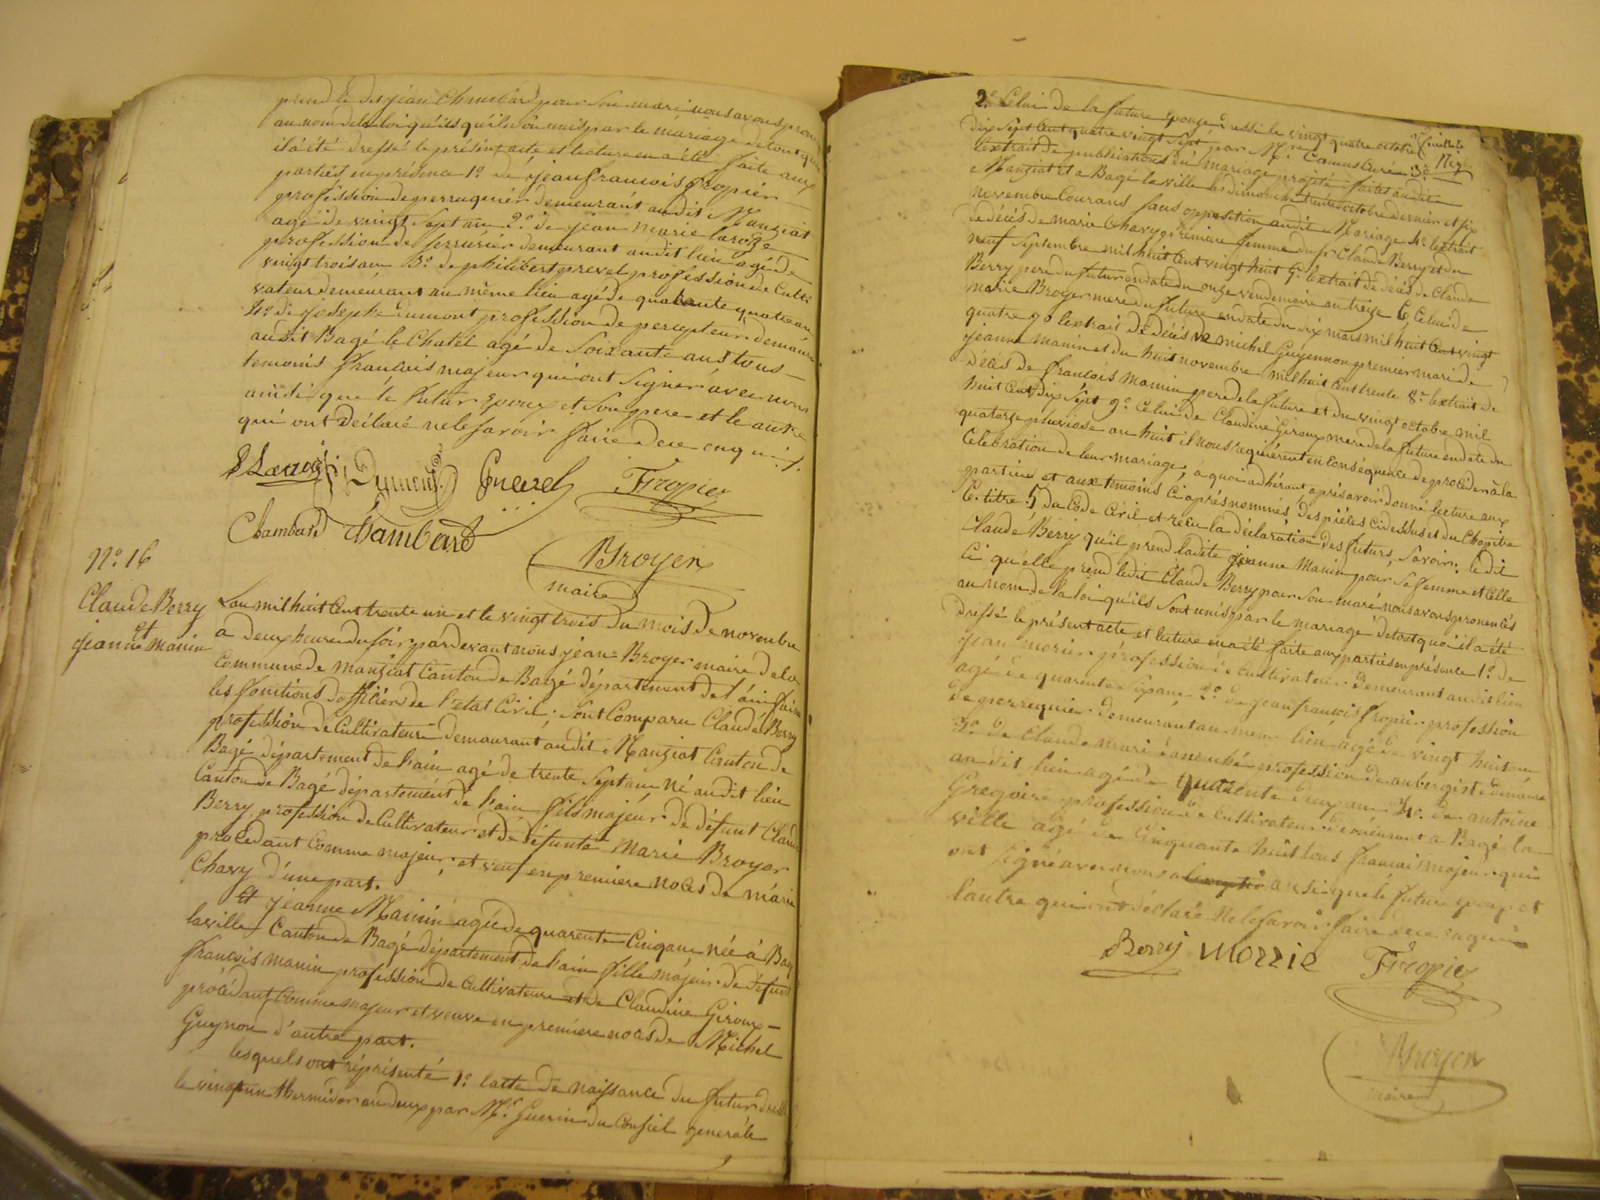 prend le dit jean Chambard pour son mari nous avons pronon
au nom de la loi qu'ils qu'ils sont unis par le mariage de tout quoi
il a été dressé le présent acte et lecture en a été faite aux
parties en présence 1o. de jean francois fropier
profession de perruquier demeurant audit Manziat
agé de vingt sept ans 2o. de jean marie
profession de serrurier demeurant audit lieu agé de
vingt trois ans 3o. de philibert prevel profession de Culti
vateur demeurant au même lieu agé de quarante quatre ans
4o. de joseph dumont profession de percepteur demeura
audit Bagé le Chatel agé de soixante ans tous
temoins francais majeur qui ont signer avec nous
ainsi que le futur Epoux et son pere et le autre
qui ont déclaré ne le savoir faire de ce enquis ./.
Dumont Prevel Fropier
Chambard Chambard
Broyer
maire
No. 16
Claude Berry
et
jeanne Manin
L'an mil huit Cent trente un et le vingt trois du mois de novembre
a deux heure du soir pardevant nous jean Broyer maire de la
Commune de manziat Canton de Bagé département de l'ain faisa
les fonctions d'officier de l'etat Civil ; sont Comparu Claude Berry
profession de Cultivateur demeurant audit Manziat Canton de
Bagé département de l'ain agé de trente sept ans Né audit lieu
Canton de Bagé département de l'ain fils majeur de défunt Claude
Berry profession de Cultivateur et de défunte Marie Broyer
procédant Comme majeur ; et veuf en premiere noces de marie
Chavy d'une part.
Et jeanne Manin agée de quarente Cinq ans née à Bagé
la ville Canton de Bagé département de l'ain fille majeur de défunt
francois manin profession de cultivateur et de Claudine Giroux
procédant Comme majeur et veuve en premiere noces de Michel
Guynon d'autre part.
lesquels ont réprésenté 1o. l'acte de naissance du futur dressé
le vingt un thermidor an deux par Mr. Guerin du Conseil generale
2o. Celui de la future Epouze dressé le vingt quatre octobre
dix sept Cent quatre vingt sept par Mr. Camus Curé 3o.
l'extrait de publications du mariage projeté faites audit
Manziat et a Bagé la ville les dimanche trente octobre dernier et six
novembre Courans sans opposition audit Mariage 4o. l'extrait
de décès de marie Chavy premiere femme du sr. Claude Berry et du
neuf septembre mil huit Cent vingt huit 5o. l'extrait de décès de Claude
Berry pere du futur en date du onze vendemiaire an treize 6. Celui de
marie Broyer mere du future en date du dix mars mil huit Cent vingt
quatre 7o. l'extrait de décès de michel Guyennon premier mari de
jeanne manin et du huit novembre mil huit Cent trente 8o. l'extrait de
décès de francois manin pere de la future et du vingt octobre mil
huit Cent dix sept 9o. Celui de Claudine Giroux mere de la future en date du
quatorze pluviose an huit il nous requierent en Conséquence de procéder à la
Celebration de leur mariage, a quoi adhérant aprés avoir donné lecture aux
parties et aux temoins Ci aprés nommés, des piéces Ci dessus et du Chapitre
6. titre 5 du Code Civil et recu la déclaration des futurs, Savoir : le dit
Claude Berry qu'il prend ladite jeanne Manin pour sa femme et Celle
Ci qu'elle prend ledit Claude Berry pour son mari nous avons prononcés
au nom de la loi qu'ils sont unis par le mariage de tout quoi il a été
dressé le présent acte et lecture en a été faite aux parties en présence 1o. de
jean profession de cultivateur demeurant audit lieu
agé de quarente ans 2o. de jean francois fropier profession
de perruquier demeurant au meme lieu agé de vingt huit ans
3o. de Claude marie profession de aubergiste demeura
audit lieu agé de quarente deux ans 4o. de antoine
Gregoire profession de Cultivateur demeurant a Bagé la
ville agé de Cinquante huit tous francais majeur qui
ont signé avec nous ainsi que le future epoux et
l'autre qui ont déclaré ne le savoir faire de ce enquis
Berry Morrie Fropier
Broyer
maire